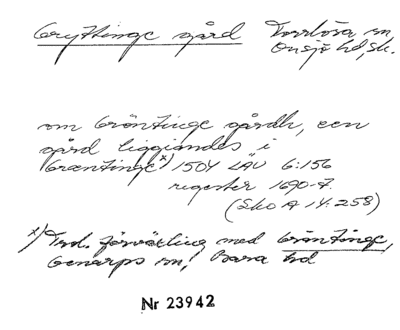 Gryttinge gård Torrlösa sn,
Onsjö hd, sk.
om Gröntinge gårdh, een
gård liggiandes i
Grœntinge x) 1504 LÄU 6:156
register 1690-t.
(Sko A 14:258)
x) Trol. förväxling med Gröntinge,
Genarps sn, Bara hd
Nr 23942